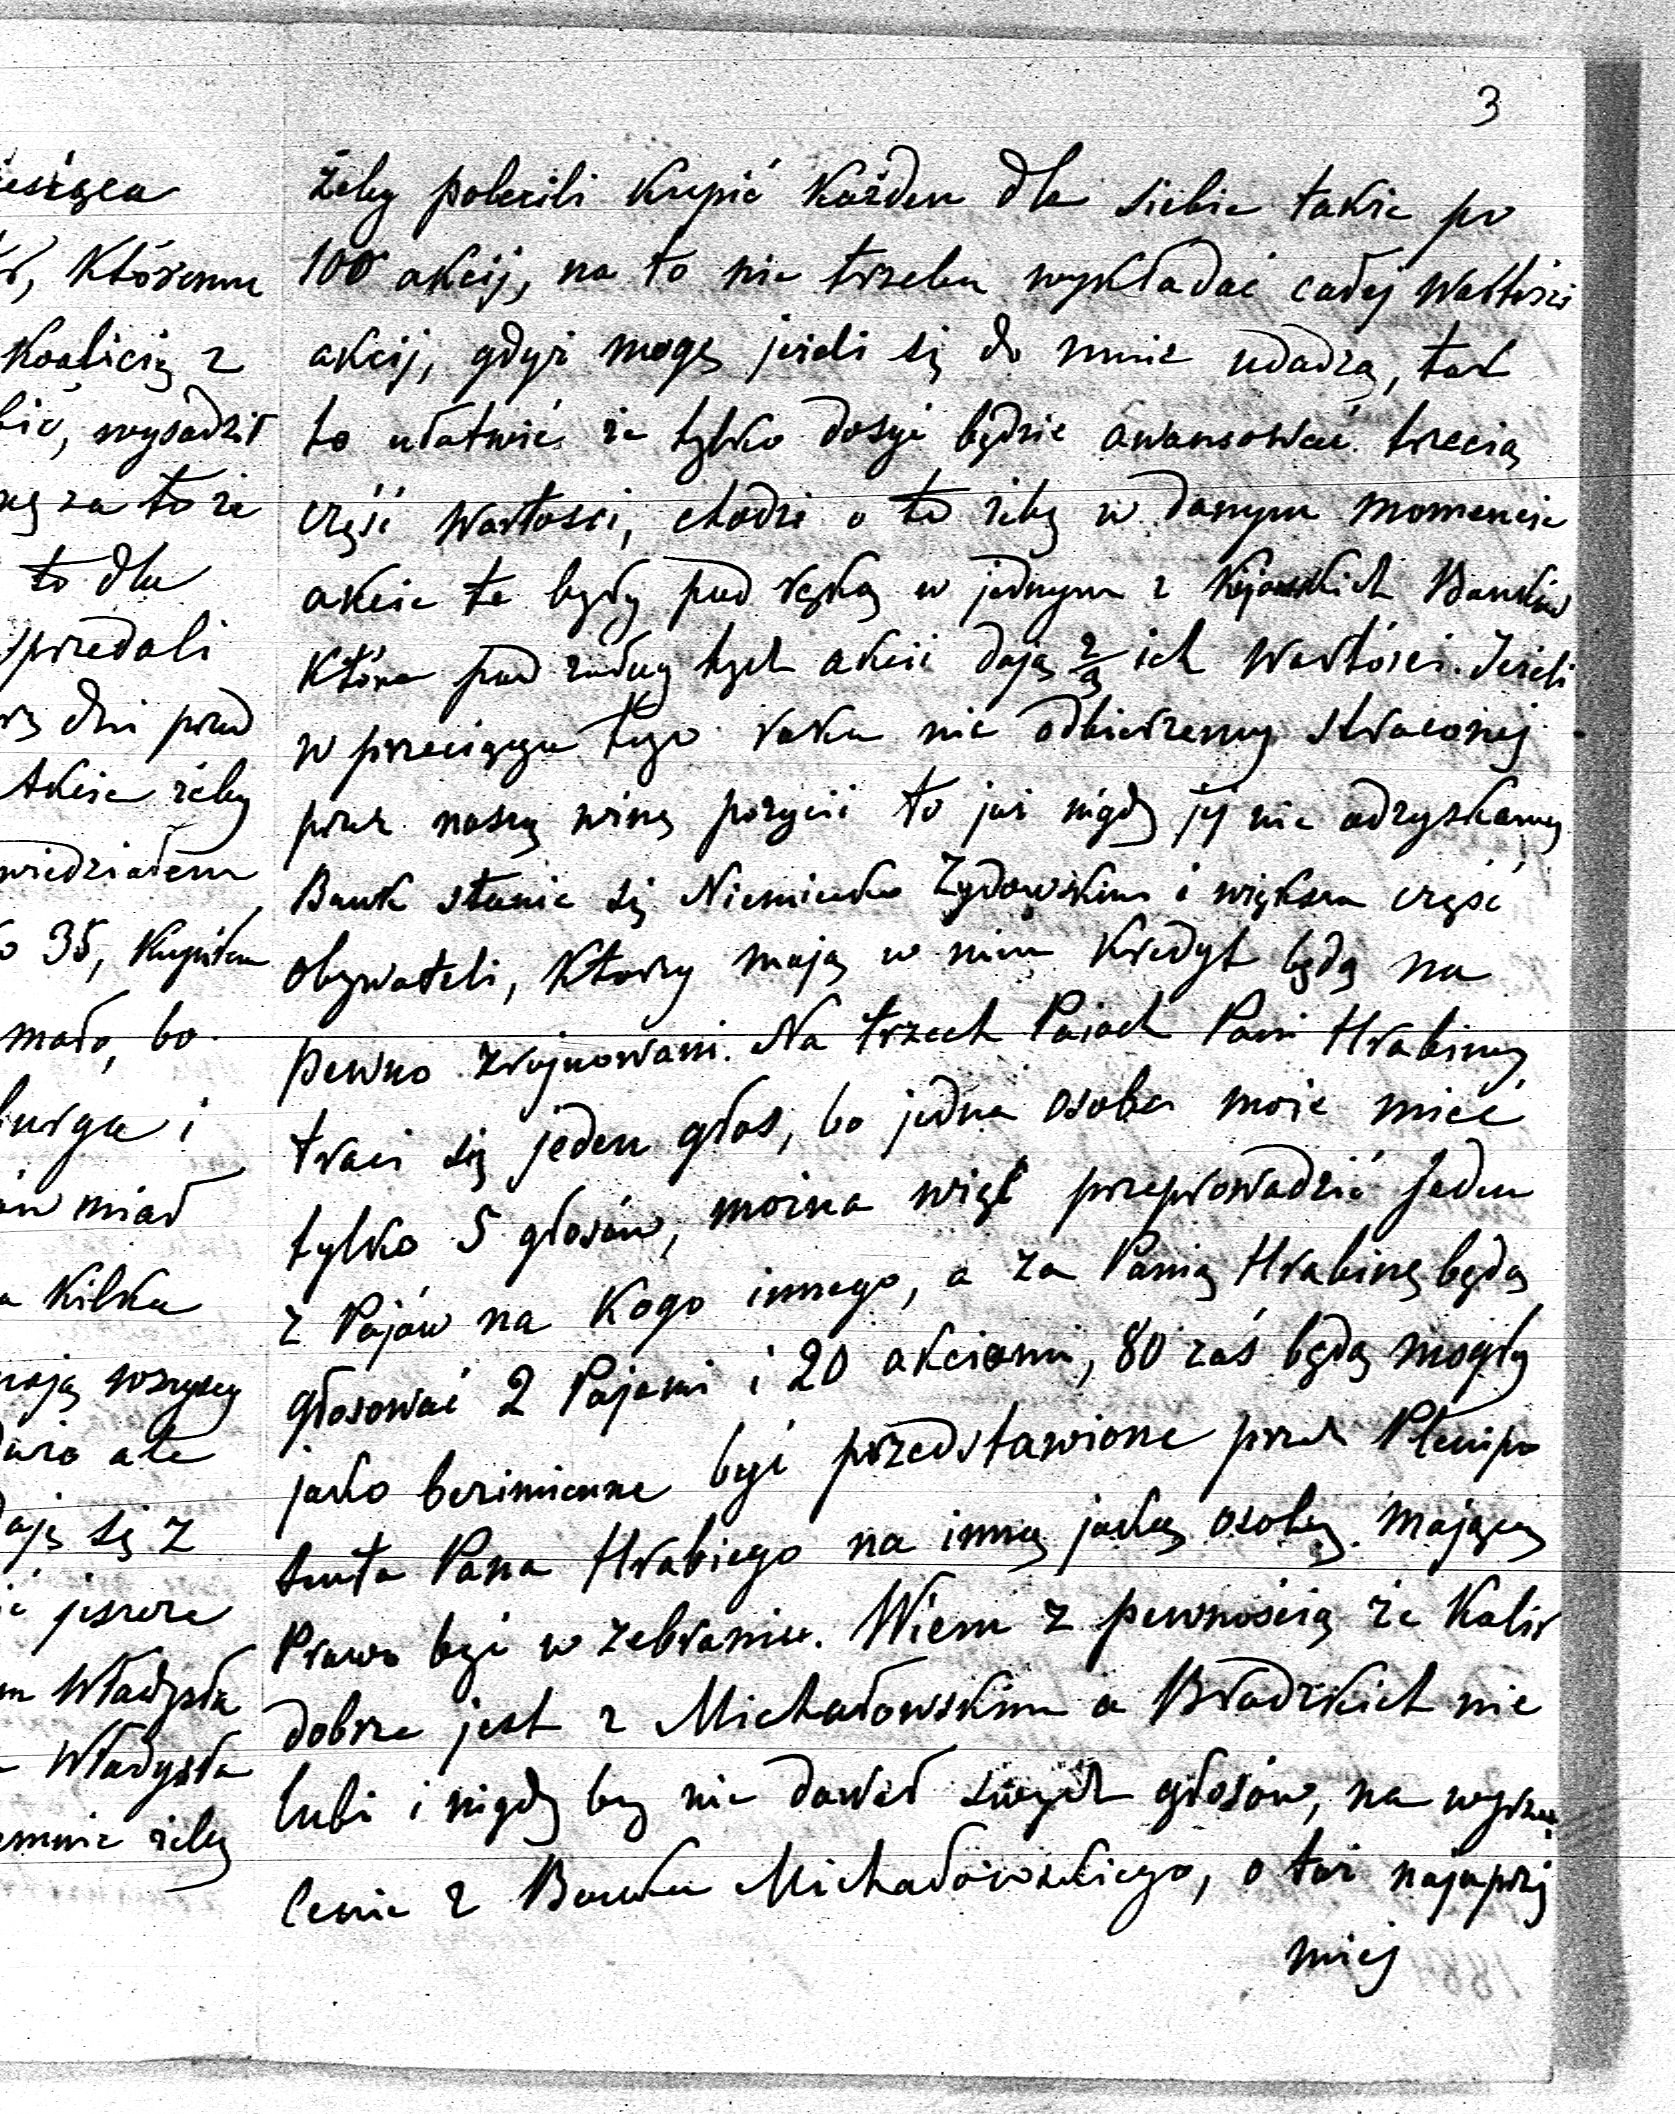 3
żeby polecili kupić każden dla siebie takie po
100 akcij, na to nie trzeba wykładać całej wartości
akcij, gdyż mogę jeżeli się do mnie udadzą, tak
to ułatwić że tylko dosyć będzie awansować trzecią
część wartosci, chodzi o to żeby w danym momencie
akcie te były pod ręką w jednym z Kijowskich Banków
które pod zastaw tych akcii dają 2/3 ich wartości. Jeżeli
w przeciągu tego roku nie odbierzemy straconej
przez naszą winę pozycii to już nigdy jej nie odzyskamy
Bank stanie się Niemiecko Żydowskim i większa część
obywateli, którzy mają w nim kredyt będą na
pewno zrujnowani. Na trzech Pajach Pani Hrabiny
traci się jeden głos, bo jedna osoba może mieć
tylko 5 głosów, można więc przeprowadzić jeden
z Pajów na kogo innego, a za Panią Hrabinę będą
głosować 2 Pajami i 20 akciami, 80 zaś będą mogły
jako bezimienne być przedstawione przez Plenipo
tenta Pana Hrabiego na inną jaką osobę mającą
Prawo być w zebraniu. Wiem z pewnością że Kalix
dobrze jest z Michałowskim a Bradzkich nie
lubi i nigdy by nie dawał swych głosów, na wyrzu
cenie z Banku Michałowskiego, o toż najuprzej
miej
ieszęca
któremu
koalicią z
bić, wysadził
za to że
to dla
sprzedali
dni przed
Akcie żeby
wiedziałem
35, kupiłem
mało, bo
burga i
miał
kilka
mają wszyscy
ale
dają się z
jeszcze
Władysła
Władysła
emnie żeby